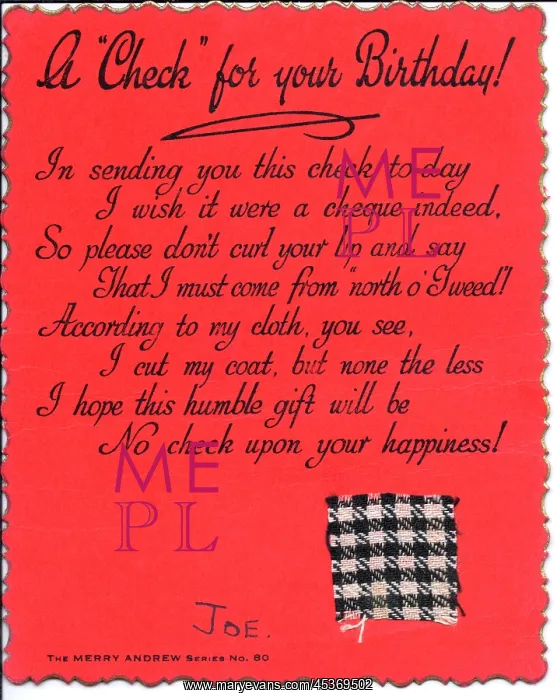 A "Check" for your Birthday!
In sending you this check to-day
I wish it were a cheque indeed,
So please don't curl your lip and say
That I must come from "north o' Tweed"!
According to my cloth, you see,
I cut my coat, but none the less
I hope this humble gift will be
No check upon your happiness!
ME
PL
ME
PL
JOE.
THE MERRY ANDREW SERIES NO. 80
www.maryevans.com/45369502